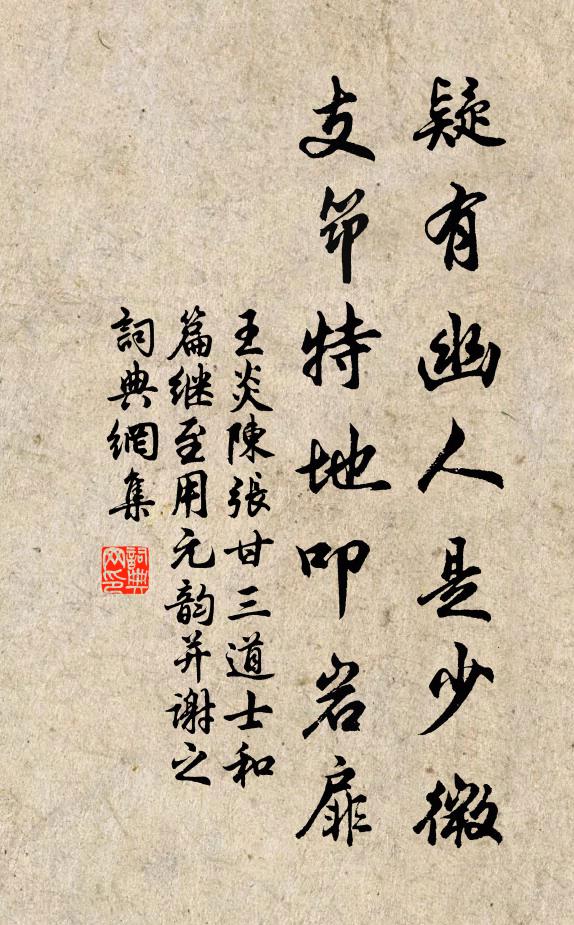 疑有幽人是少微
支筇特地叩岩扉
王炎陳張甘三道士和
篇继至用元韵并谢之
詞典網集
詞典
网印